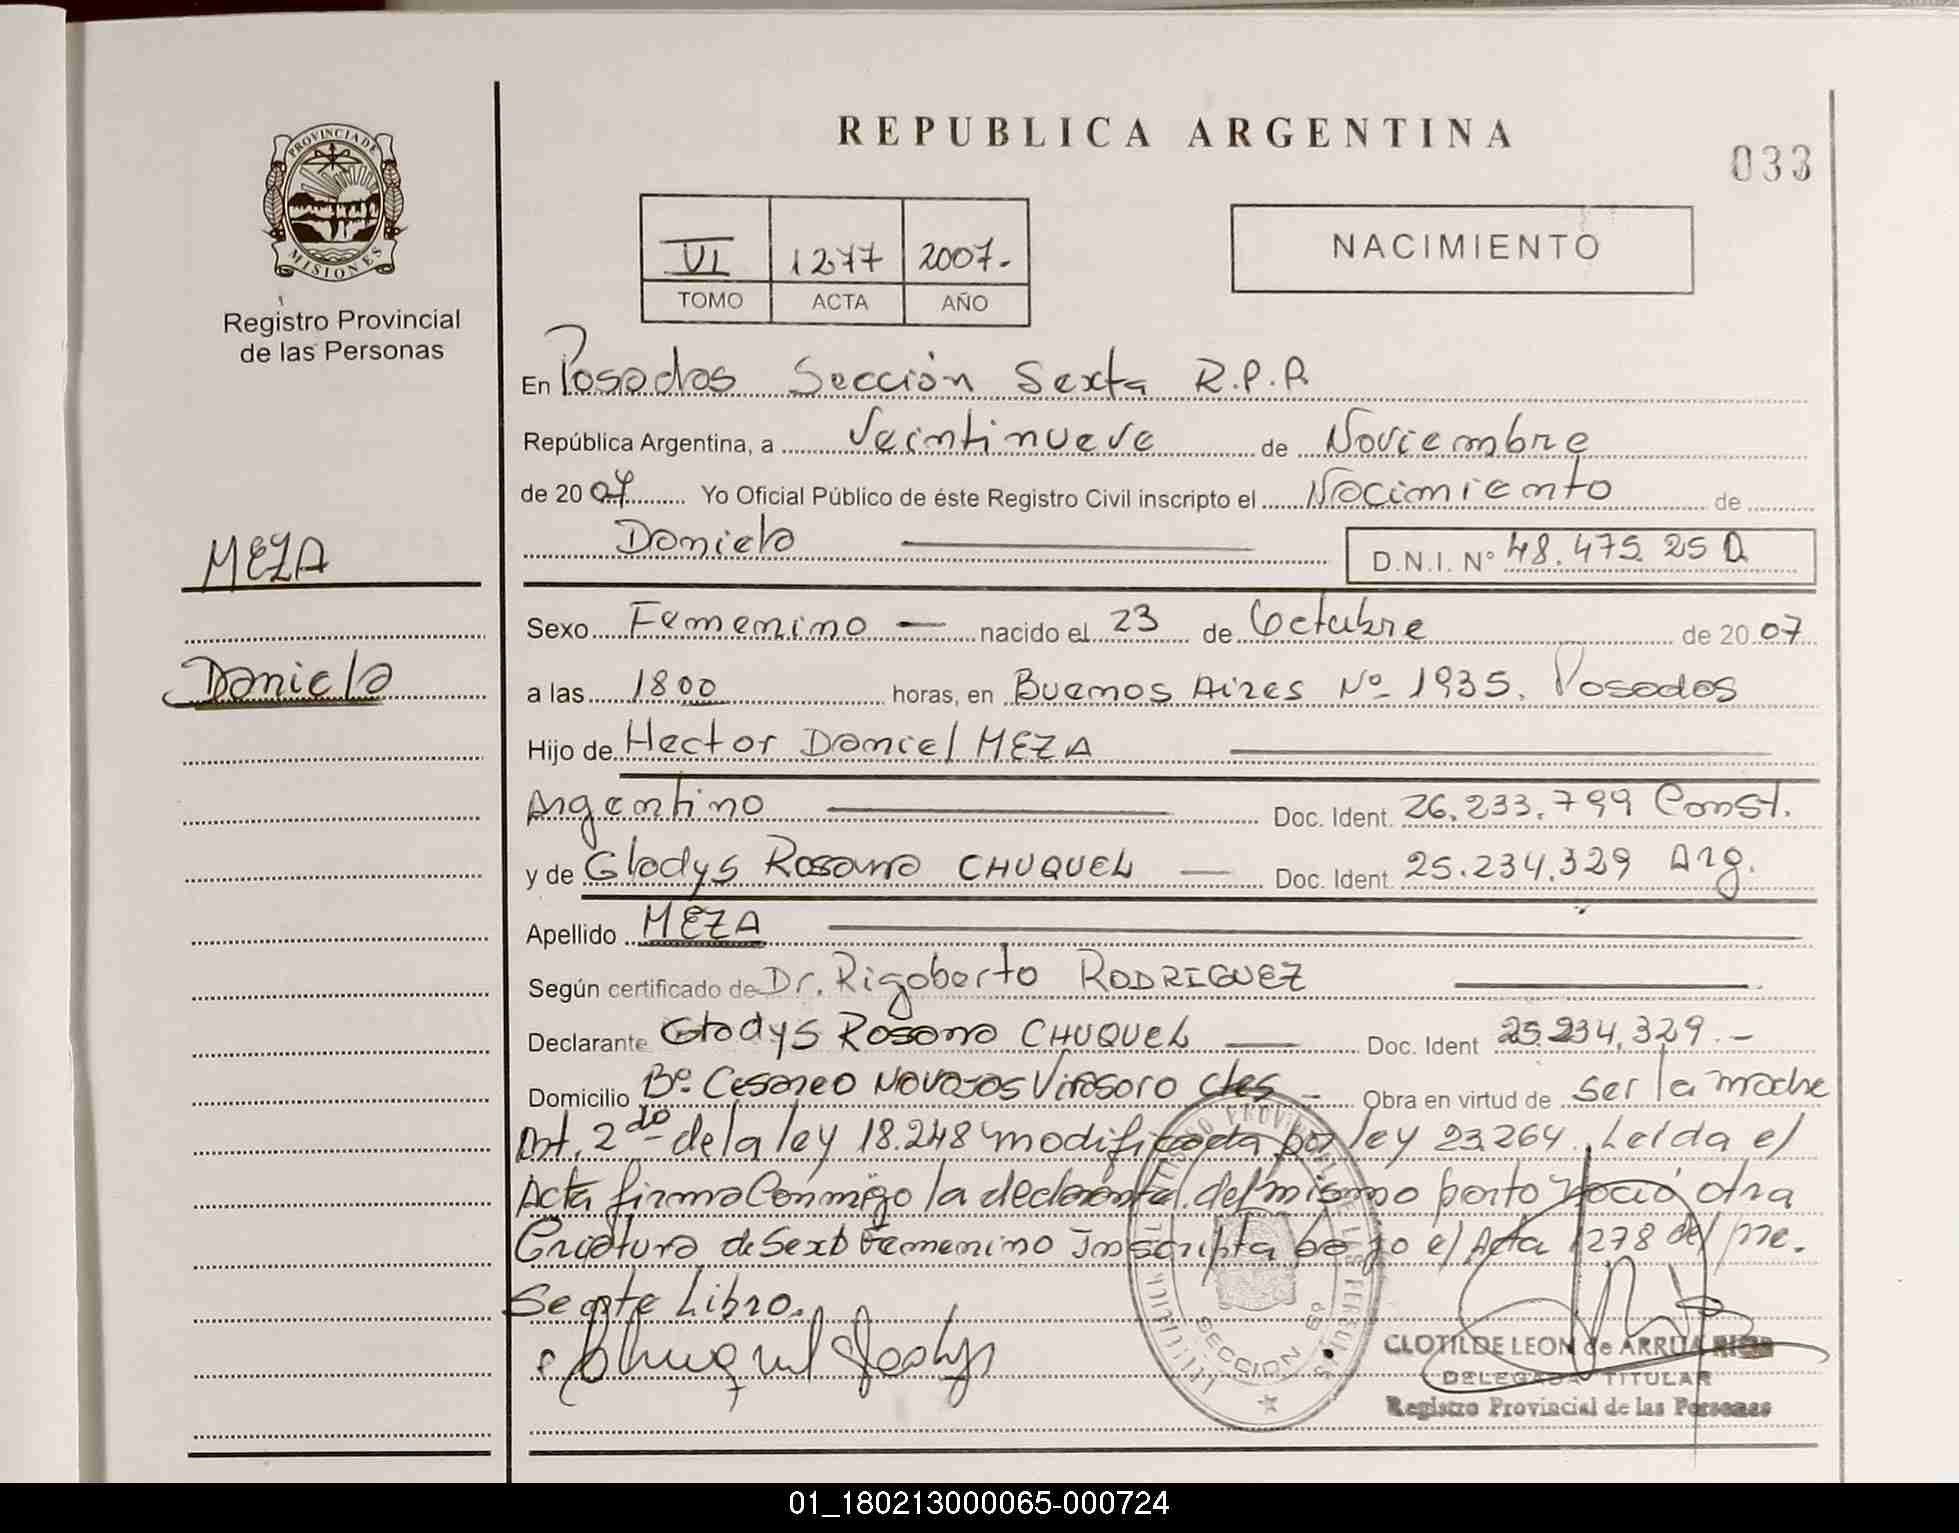 PROVINCIA DE
MISIONES
Registro Provincial
de las Personas
MEZA
Daniela
REPUBLICA ARGENTINA
033
VI 1277 2007.-
TOMO ACTA AÑO
NACIMIENTO
En Posadas Sección Sexta R.P.P.
República Argentina, a Veintinueve de Noviembre
de 20 07 Yo Oficial Público de éste Registro Civil inscripto el Nacimiento de
Daniela D.N.I. N° 48.475.250
Sexo Femenino — nacido el 23 de Octubre de 20 07
a las 1800 horas, en Buenos Aires Nº 1935. Posadas
Hijo de Hector Daniel MEZA
Argentino Doc. Ident. 26.233.799 Const.
y de Gladys Rosana CHUQUEL — Doc. Ident. 25.234.329 Arg.
Apellido MEZA
Según certificado de Dr. Rigoberto RODRIGUEZ
Declarante Gladys Rosana CHUQUEL — Doc. Ident 25.234.329.-
Domicilio Bº Cesareo Navajas Virasoro Ctes - Obra en virtud de ser la madre
Art. 2do de la ley 18.248 modificada por ley 23264. Leida el
Acta firma Conmigo la declarante. del mismo parto nació otra
Criatura de Sexo Femenino Inscripta bajo el Acta 1278 del pre.
Sente Libro.
Chuquel Gladys
SECCION 6ª
CLOTILDE LEON de ARRUA RIOS
DELEGADA TITULAR
Registro Provincial de las Personas
01_180213000065-000724